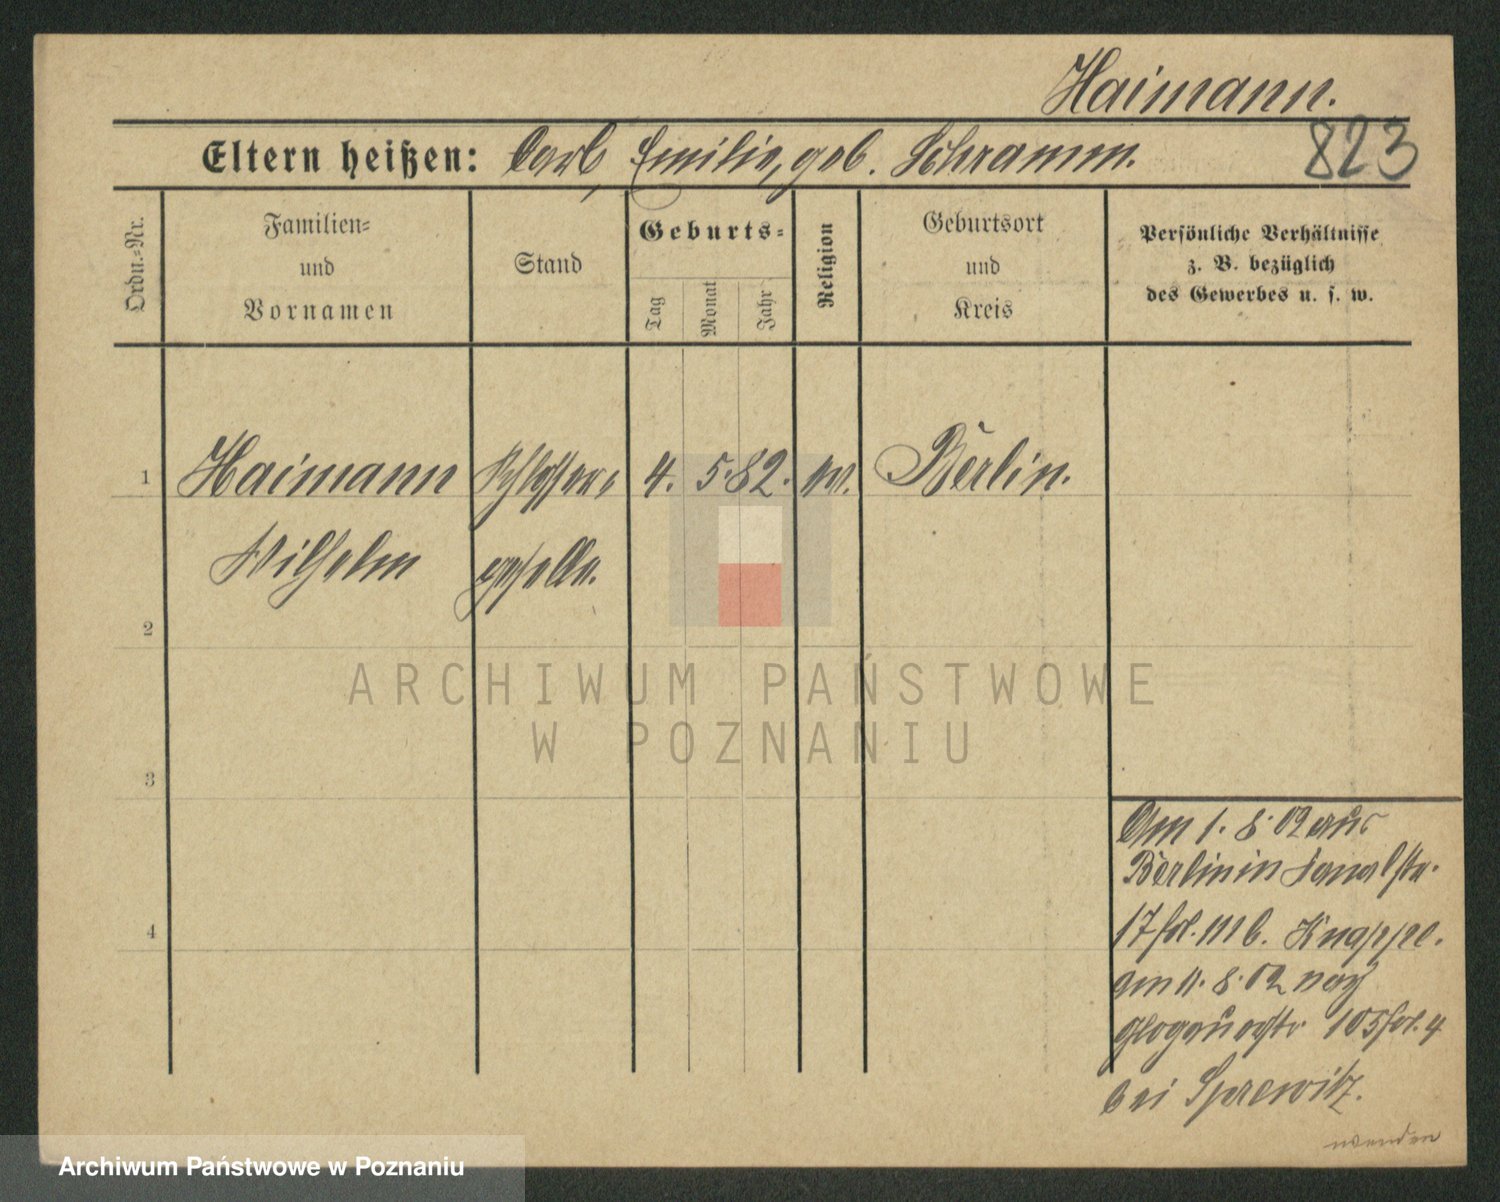 Haimann.
823
Eltern heißen: Carl, Emilie, geb. Schramm.
Ordn.-Nr.
Familien-
und
Vornamen
Stand
Geburts-
Tag
Monat
Jahr
Religion
Geburtsort
und
Kreis
Persönliche Verhältnisse
z. B. bezüglich
des Gewerbes u. s. w.
1 Haimann Schlosser- 4. 5. 82. Berlin.
Wilhelm geselle.
2
3
4
Am 1. 8. 02 aus
Berlin in Kanalstr.
17 b. Knappe.
am 11. 8. 02 nach
Glogauerstr. 105
bei Sprewitz.
wenden
ARCHIWUM PAŃSTWOWE
W POZNANIU
Archiwum Państwowe w Poznaniu